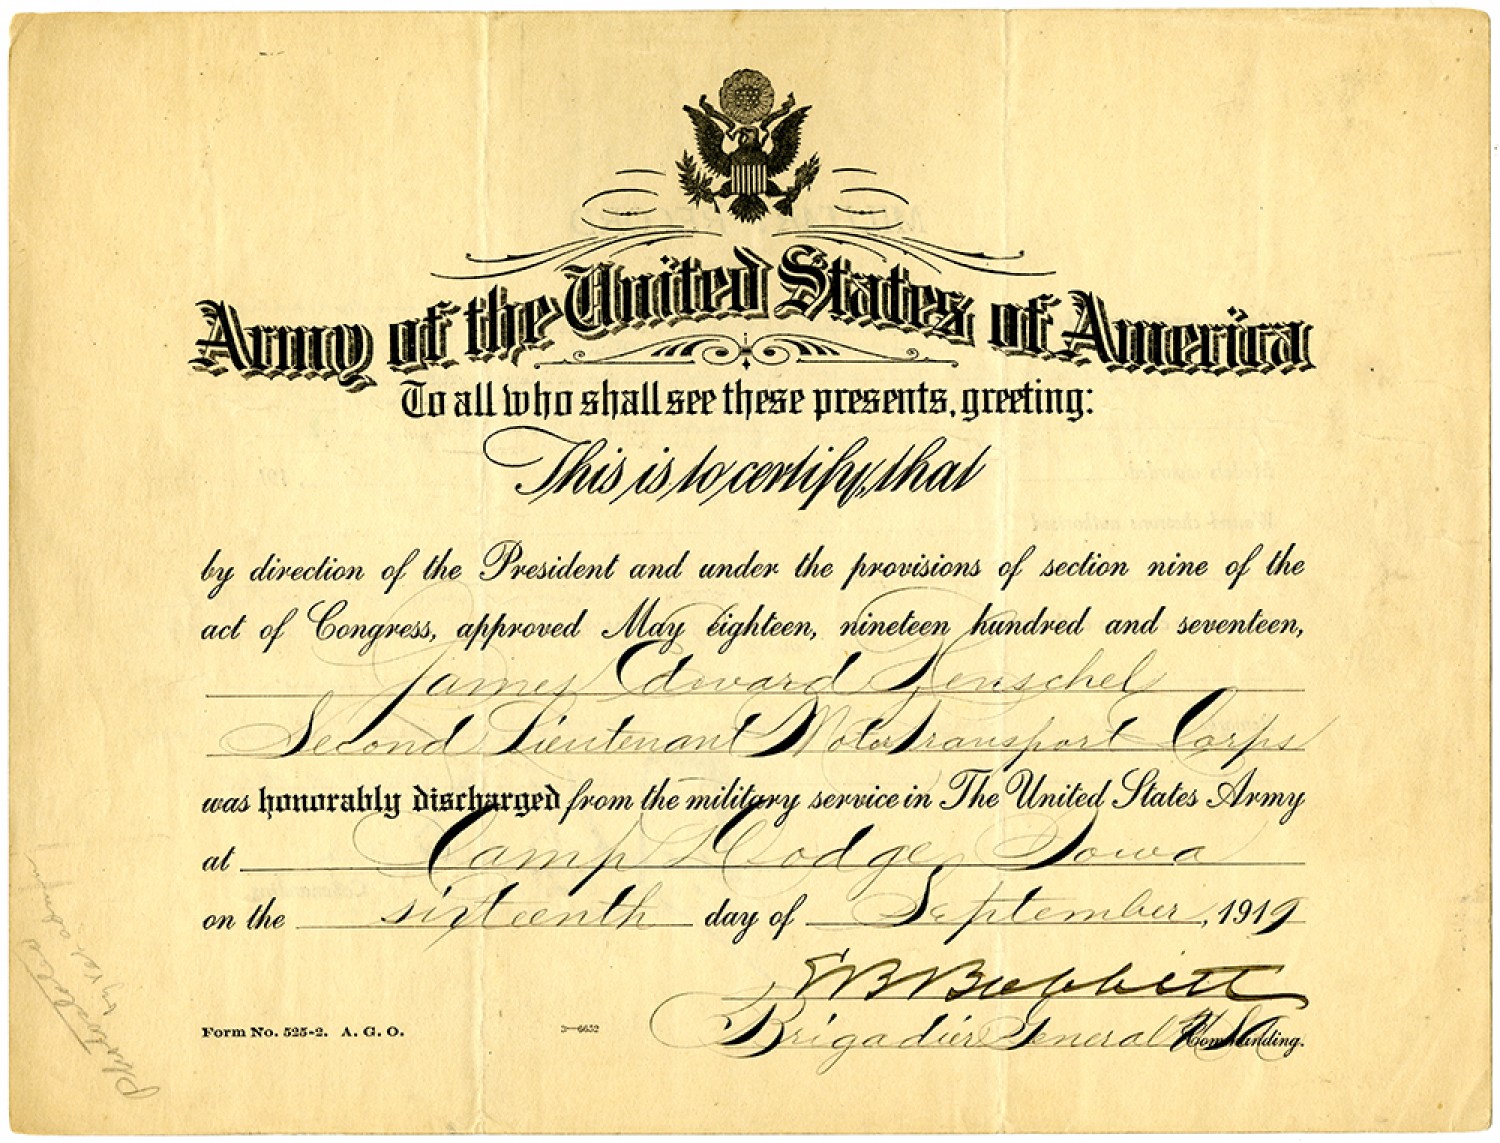 Army of the United States of America
To all who shall see these presents, greeting:
This is to certify, that
by direction of the President and under the provisions of section nine of the
act of Congress, approved May eighteen, nineteen hundred and seventeen,
James Edward Henschel
Second Lieutenant Motor Transport Corps
was honorably discharged from the military service in The United States Army
at Camp Dodge, Iowa
on the sixteenth day of September, 1919
E B Babbitt
Brigadier General U S A Commanding.
Form No. 525-2. A. G. O. 3—6652
Photostated